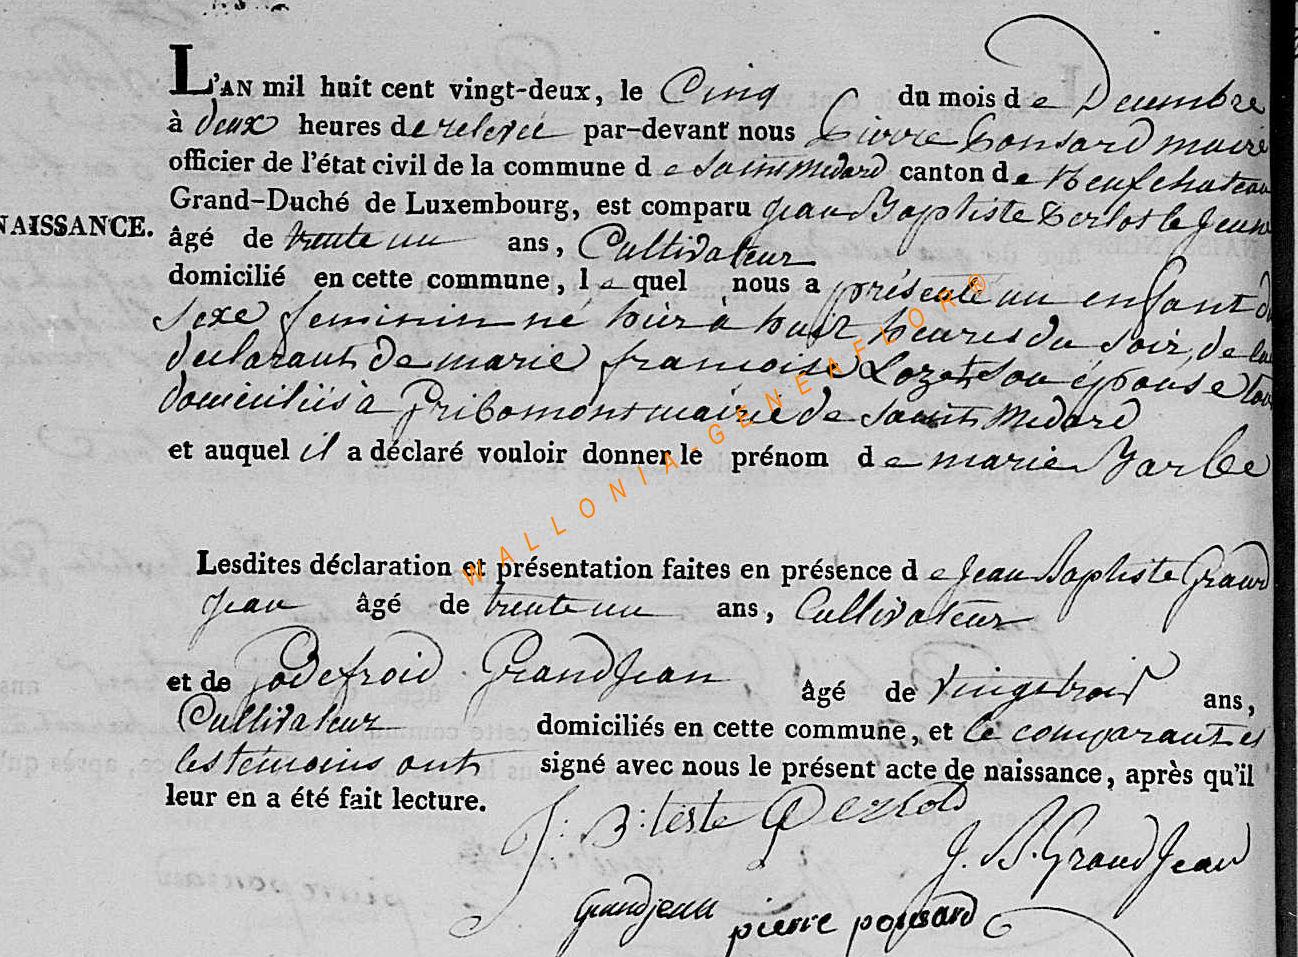 L'AN mil huit cent vingt-deux, le Cinq du mois de Decembre
à deux heures de relevée par-devant nous Pierre Ponsard maire
officier de l'état civil de la commune de Saint Medard canton de Neufchateau
Grand-Duché de Luxembourg, est comparu Jean Baptiste Derlot le Jeune
NAISSANCE.
âgé de trente un ans, Cultivateur
domicilié en cette commune, lequel nous a présenté un enfant du
Sexe feminin né hier à huit heures du Soir, de lui
declarant de marie francoise Lozet Son épouse tous
domiciliés à Gribomont mairie de Saint Medard
et auquel il a déclaré vouloir donner le prénom de marie Barbe
Lesdites déclaration et présentation faites en présence de Jean Baptiste Grand
Jean âgé de trente un ans, Cultivateur
et de Godefroid GrandJean âgé de vingt trois ans,
Cultivateur domiciliés en cette commune, et le comparant et
les temoins ont signé avec nous le présent acte de naissance, après qu'il
leur en a été fait lecture.
J: B: teste Derlot
J. B. GrandJean
Grandjean pierre ponsard
WALLONIA-GENEAFLOR®